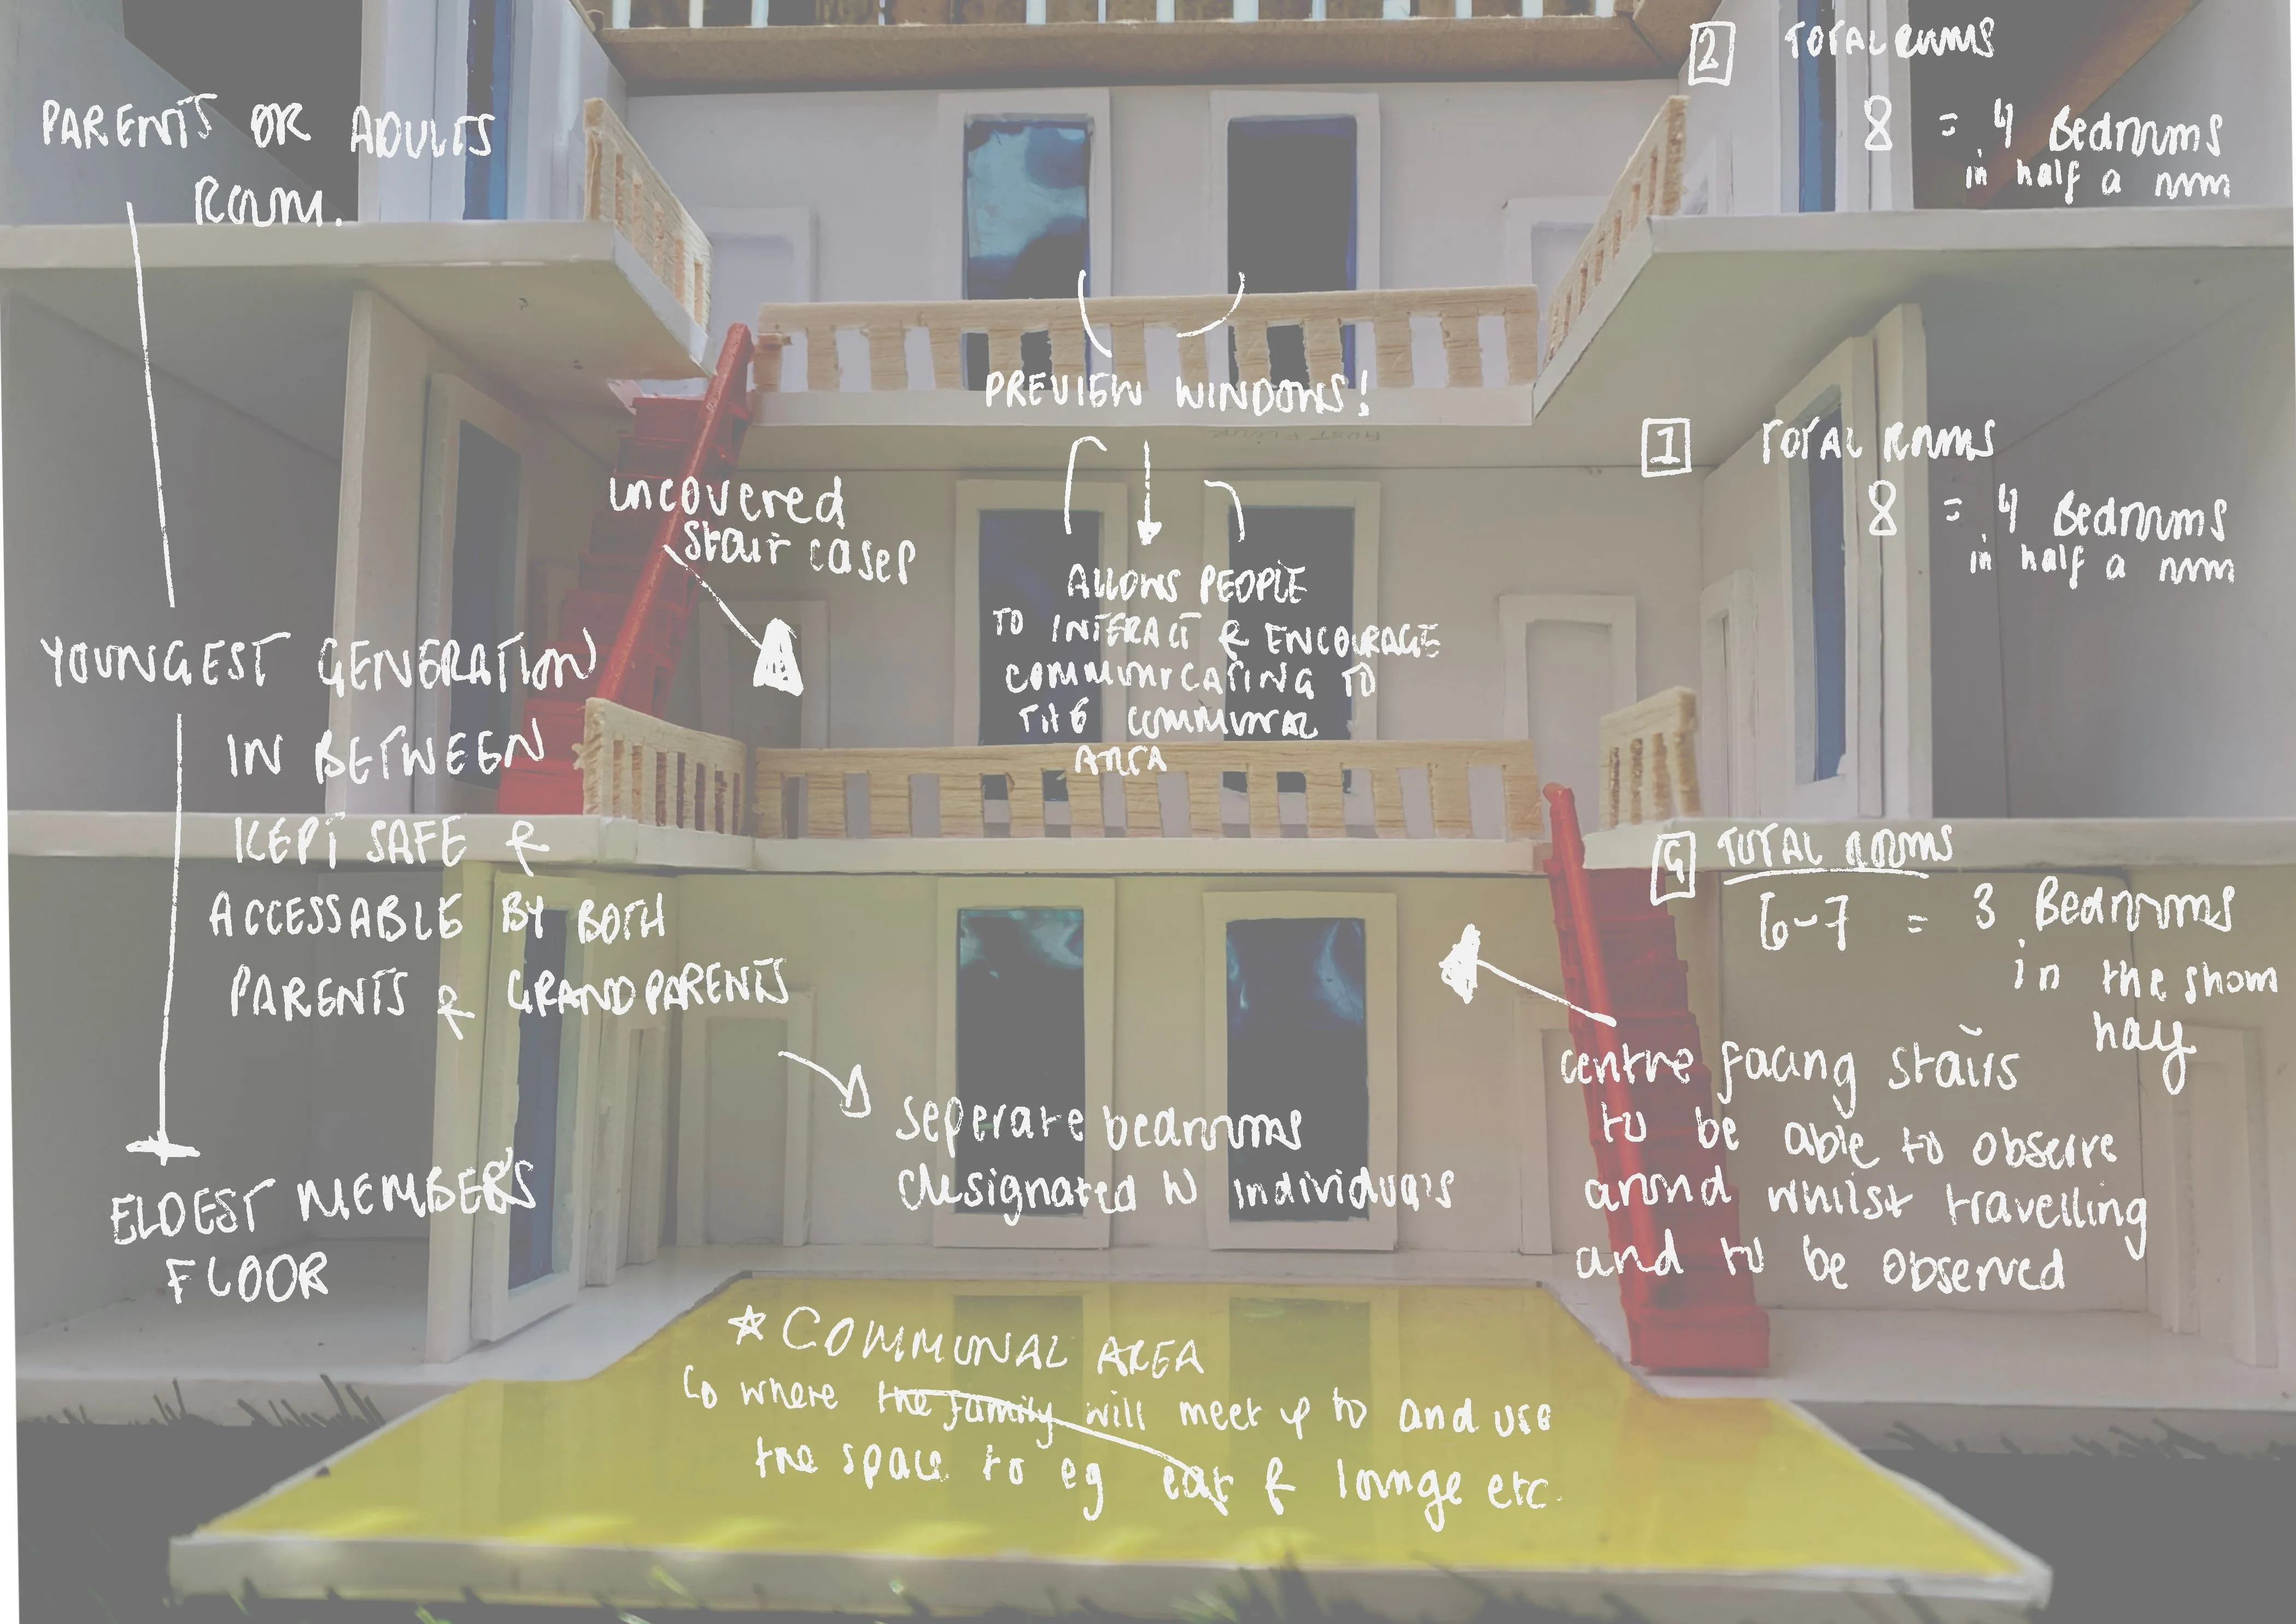 PARENTS OR ADULTS
ROOM.
YOUNGEST GENERATION
IN BETWEEN
KEPT SAFE &
ACCESSABLE BY BOTH
PARENTS & GRANDPARENTS
ELDEST MEMBERS
FLOOR
uncovered
stair cases
PREVIEW WINDOWS!
ALLOWS PEOPLE
TO INTERACT & ENCOURAGE
COMMUNICATING TO
THE COMMUNAL
AREA
seperate bedrooms
designated to individuals
2 TOTAL ROOMS
8 = 4 Bedrooms
in half a room
1 TOTAL ROOMS
8 = 4 Bedrooms
in half a room
G TOTAL ROOMS
6-7 = 3 Bedrooms
in the shown
half
centre facing stairs
to be able to observe
around whilst travelling
and to be observed
* COMMUNAL AREA
where the family will meet up to and use
the space to eg eat & lounge etc.